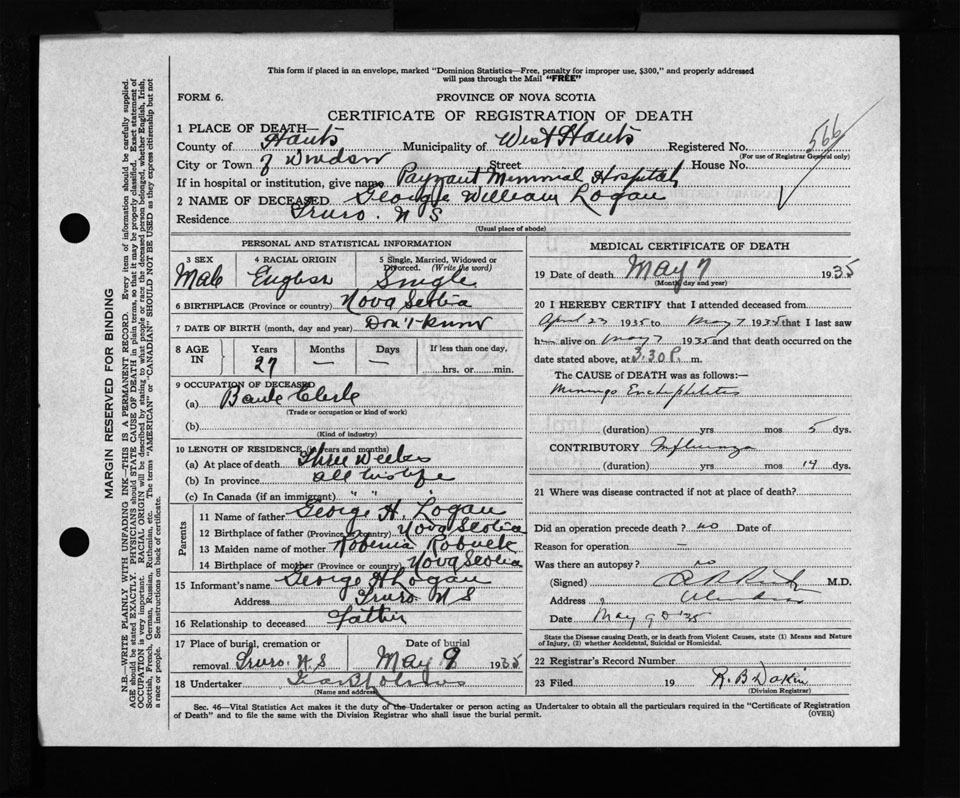 This form if placed in an envelope, marked "Dominion Statistics—Free, penalty for improper use, $300," and properly addressed
will pass through the Mail "FREE"
FORM 6.
PROVINCE OF NOVA SCOTIA
CERTIFICATE OF REGISTRATION OF DEATH
566
1 PLACE OF DEATH—
County of Hants Municipality of West Hants Registered No.
(For use of Registrar General only)
City or Town of Windsor Street House No.
If in hospital or institution, give name Payzant Memorial Hospital
2 NAME OF DECEASED George William Logan
Residence Truro. N S
(Usual place of abode)
PERSONAL AND STATISTICAL INFORMATION
3 SEX 4 RACIAL ORIGIN 5 Single, Married, Widowed or
Divorced. (Write the word)
Male English Single
6 BIRTHPLACE (Province or country) Nova Scotia
7 DATE OF BIRTH (month, day and year) Don't know
8 AGE IN Years Months Days If less than one day,
27 — — hrs. or min.
9 OCCUPATION OF DECEASED
(a) Bank Clerk
(Trade or occupation or kind of work)
(b)
(Kind of industry)
10 LENGTH OF RESIDENCE (in years and months)
(a) At place of death Three Weeks
(b) In province all his life
(c) In Canada (if an immigrant) " " "
Parents
11 Name of father George H. Logan
12 Birthplace of father (Province or country) Nova Scotia
13 Maiden name of mother
14 Birthplace of mother (Province or country) Nova Scotia
15 Informant's name George H Logan
Address Truro N S
16 Relationship to deceased Father
17 Place of burial, cremation or Date of burial
removal Truro. N.S May 9 1935
18 Undertaker
(Name and address)
MEDICAL CERTIFICATE OF DEATH
19 Date of death May 7 1935
(Month, day and year)
20 I HEREBY CERTIFY that I attended deceased from
April 23 1935 to May 7 1935 that I last saw
him alive on May 7 1935 and that death occurred on the
date stated above, at 3.30 P. m.
The CAUSE of DEATH was as follows:—
(duration) yrs mos 5 dys.
CONTRIBUTORY Influenza
(duration) yrs mos 14 dys.
21 Where was disease contracted if not at place of death?
Did an operation precede death? no Date of
Reason for operation —
Was there an autopsy? no
(Signed) M.D.
Address
Date May 9 35
State the Disease causing Death, or in death from Violent Causes, state (1) Means and Nature
of Injury, (2) whether Accidental, Suicidal or Homicidal.
22 Registrar's Record Number
23 Filed 19 R. B Dakin
(Division Registrar)
Sec. 46—Vital Statistics Act makes it the duty of the Undertaker or person acting as Undertaker to obtain all the particulars required in the "Certificate of Registration
of Death" and to file the same with the Division Registrar who shall issue the burial permit.
(OVER)
MARGIN RESERVED FOR BINDING
N.B.—WRITE PLAINLY WITH UNFADING INK—THIS IS A PERMANENT RECORD. Every item of information should be carefully supplied.
AGE should be stated EXACTLY. PHYSICIANS should STATE CAUSE OF DEATH in plain terms, so that it may be properly classified. Exact statement of
OCCUPATION is very important. RACIAL ORIGIN will be described by stating to what people or race the deceased person belonged, whether English, Irish,
Scottish, French, German, Russian, Ruthenian, etc. The terms "AMERICAN" or "CANADIAN" SHOULD NOT BE USED as they express citizenship but not
a race or people. See instructions on back of certificate.